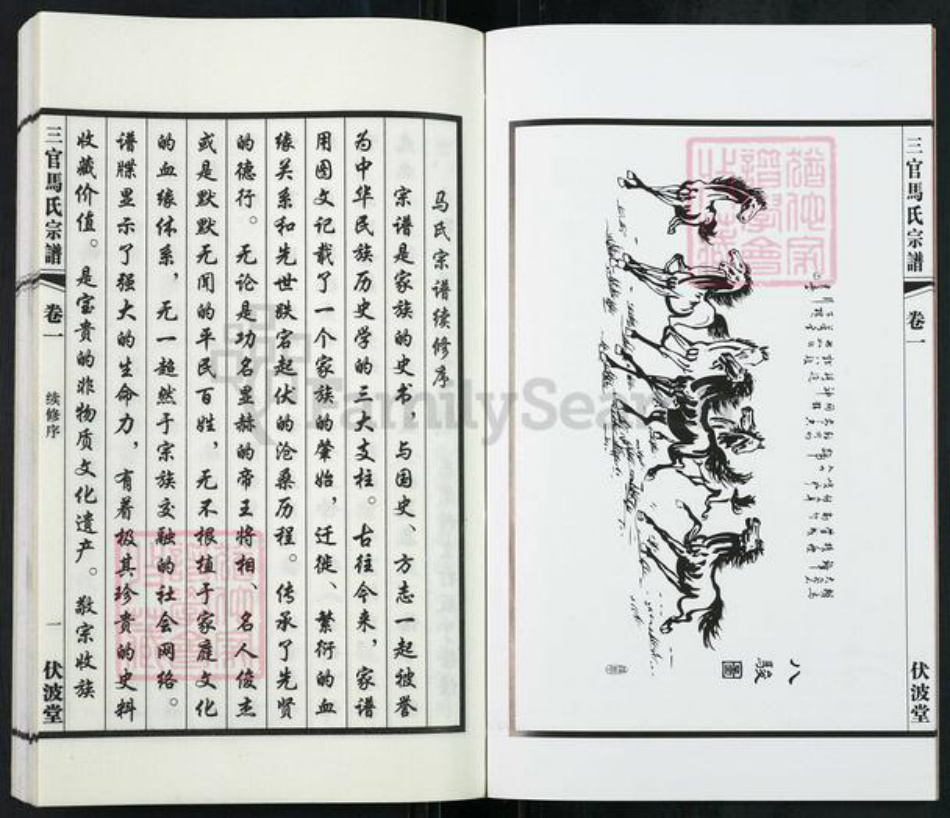 三官馬氏宗譜
卷一
伏波堂
八駿圖
马氏宗谱续修序
宗谱是家族的史书，与国史、方志一起被誉
为中华民族历史学的三大支柱。古往今来，家谱
用图文记载了一个家族的肇始，迁徙、繁衍的血
缘关系和先世跌宕起伏的沧桑历程。传承了先贤
的德行。无论是功名显赫的帝王将相、名人俊杰
或是默默无闻的平民百姓，无不根植于家庭文化
的血缘体系，无一超然于宗族交融的社会网络。
谱牒显示了强大的生命力，有着极其珍贵的史料
收藏价值。是宝贵的非物质文化遗产。敬宗收族
三官馬氏宗譜
卷一
续修序
一
伏波堂
FamilySearch